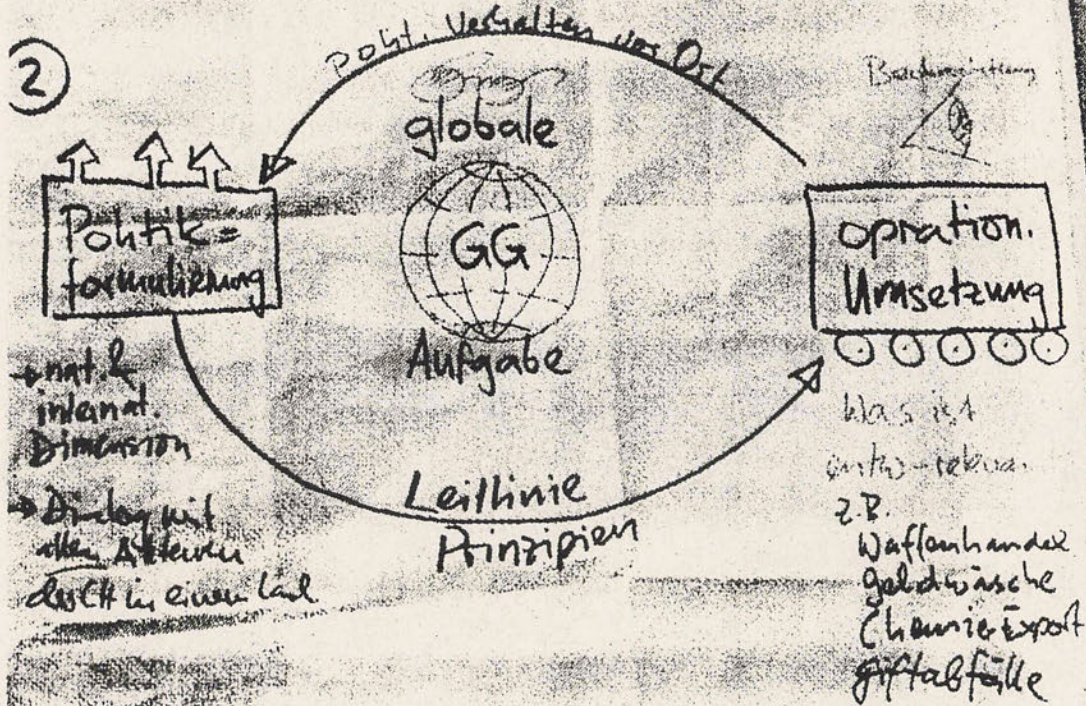 2
Polit. Verhalten vor Ort
globale
GG
Aufgabe
Politik=
formulierung
opration.
Umsetzung
→ nat. &
internat.
Dimension
→ Dialog mit
allen Akteuren
der CH in einem Land
Leitlinie
Prinzipien
Was ist
entw-relevan
z.B.
Waffenhandel
Geldwäsche
Chemie-Export
Giftabfälle